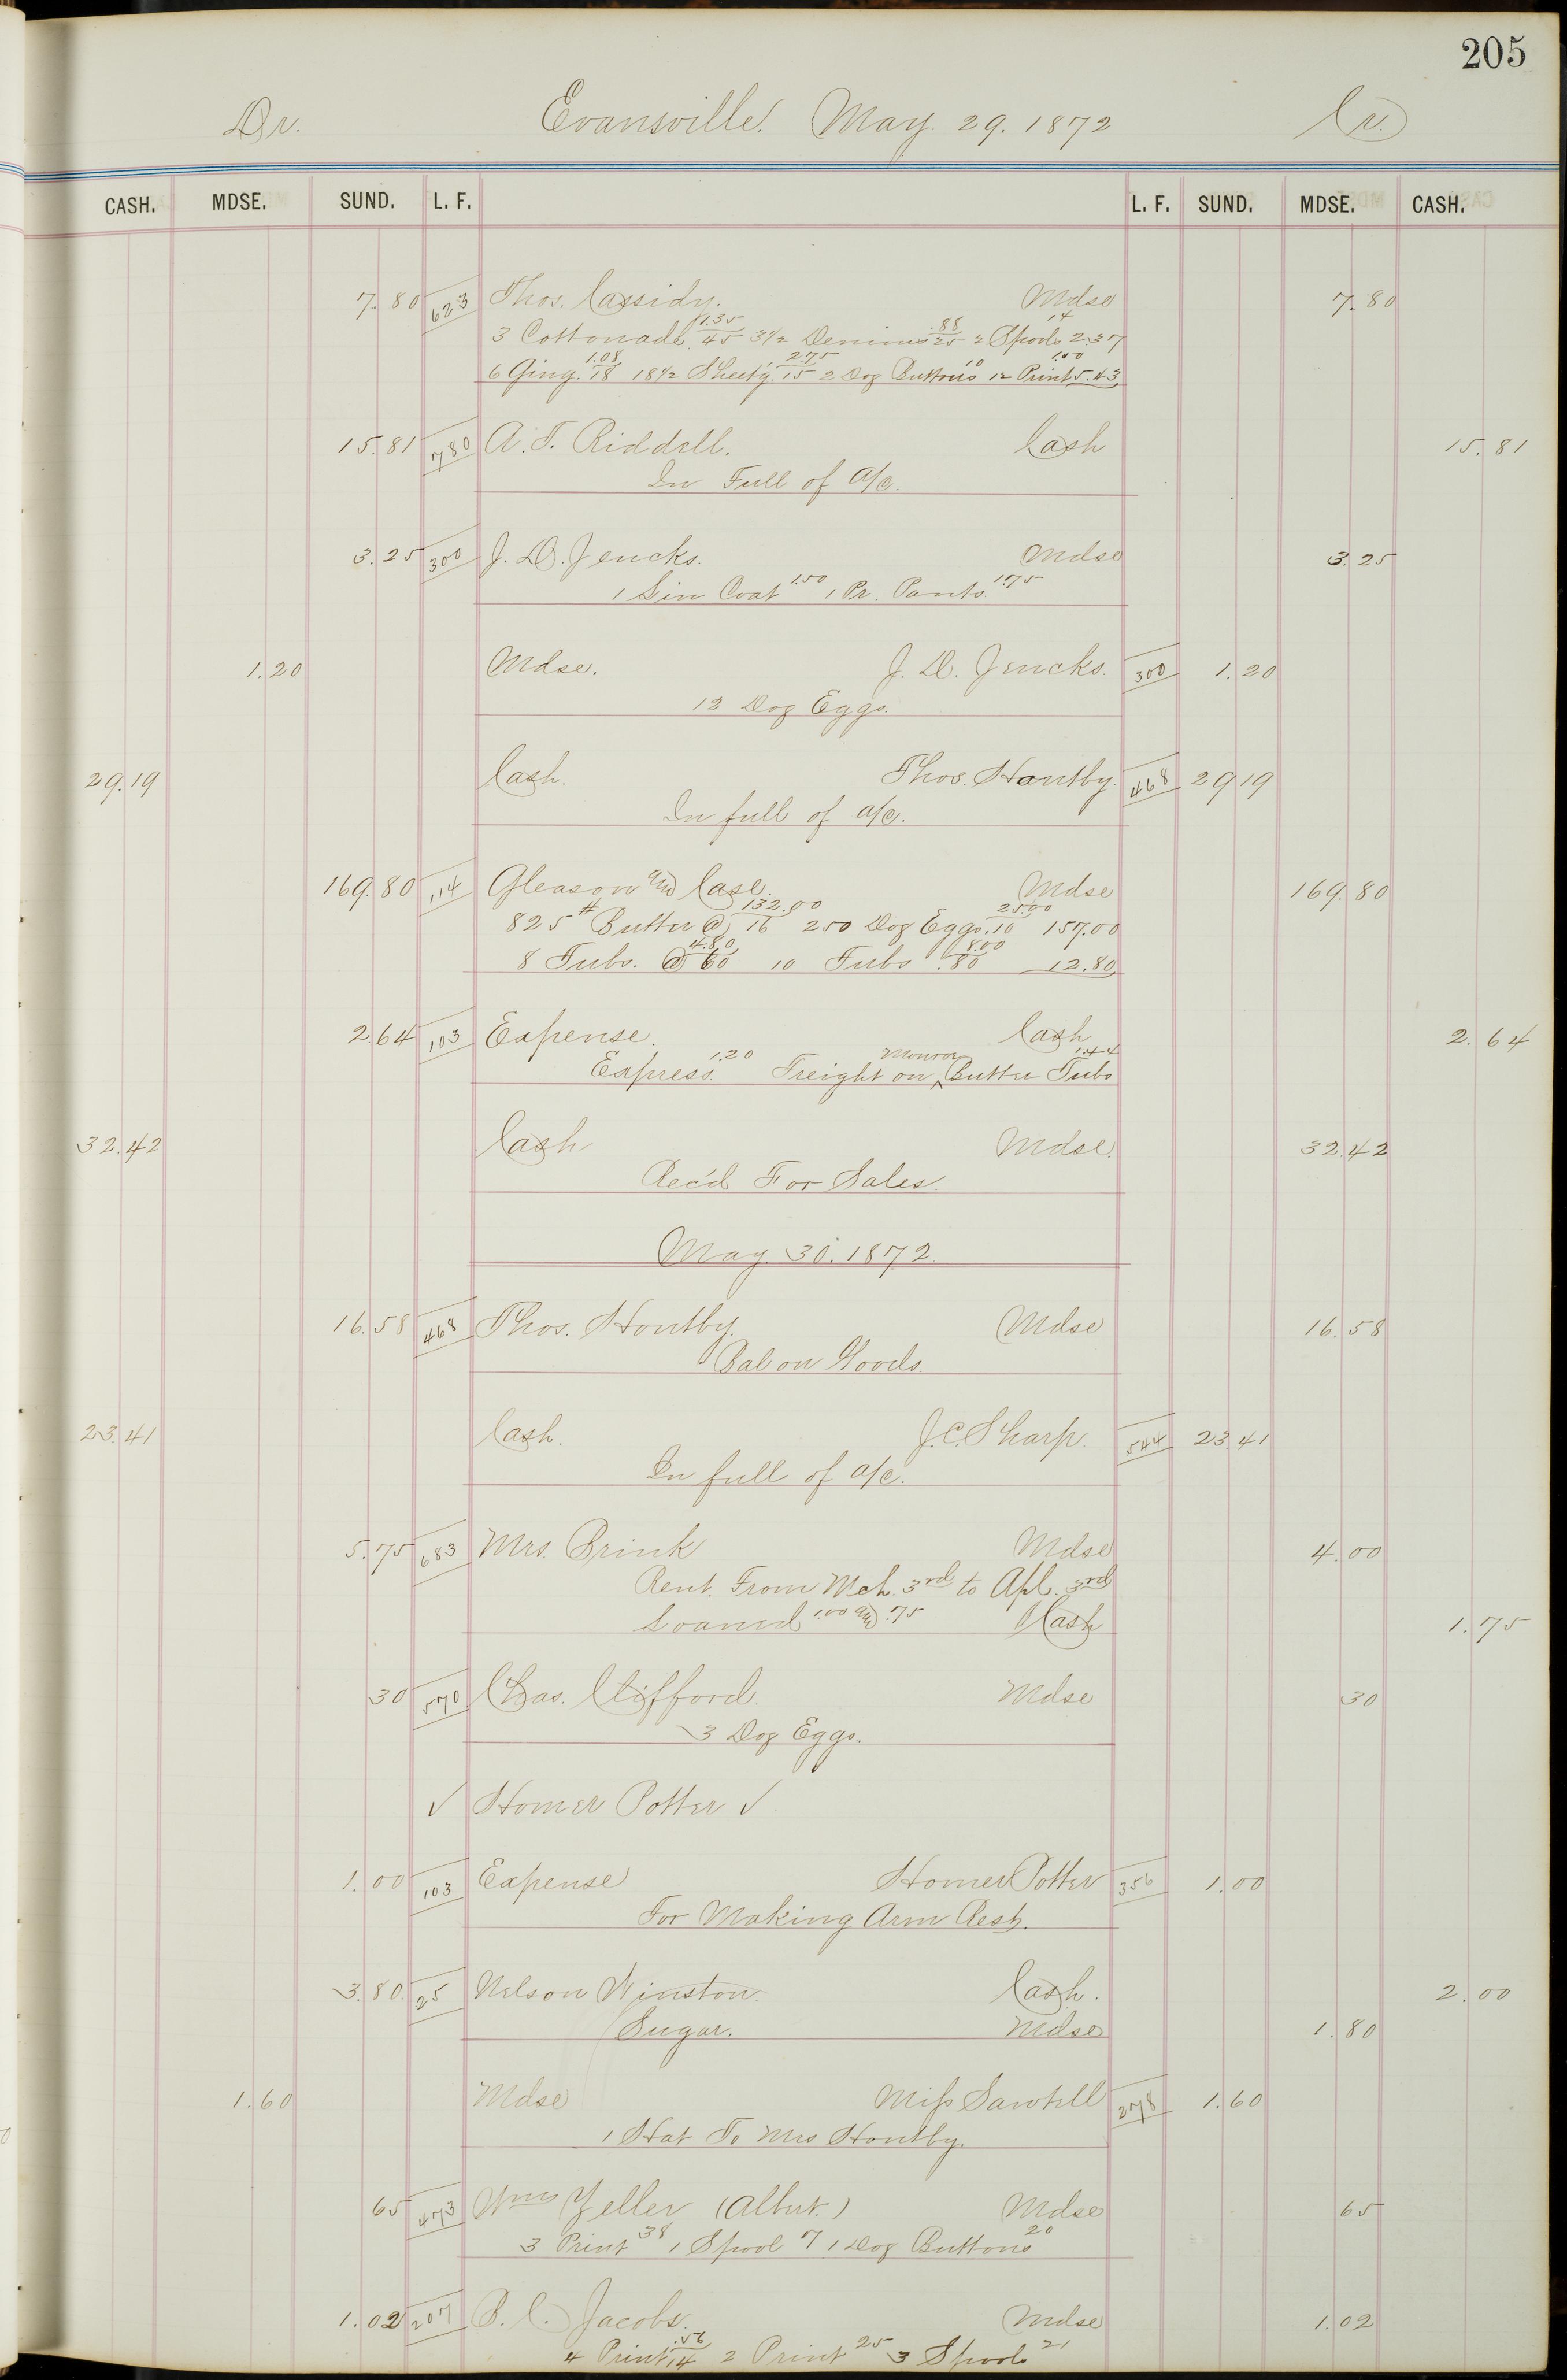 205
Dr. Evansville. May. 29. 1872 Cr.
CASH. MDSE. SUND. L. F. L. F. SUND. MDSE. CASH.
7.80 623 Thos. Cassidy. Mdse 7.80
3 Cottonade 1.35/45 3½ Denims .88/25 2 Spools 14 2.37
6 Ging. 1.08/18 18½ Sheet'g. 2.75/15 2 Doz Buttons 10 12 Print 1.50 5.43
15.81 780 A. T. Riddell. Cash 15.81
In Full of a/c.
3.25 300 J. D. Jencks. Mdse 3.25
1 Lin Coat 1.50 1 Pr. Pants. 1.75
1.20 Mdse. J. D. Jencks. 300 1.20
12 Doz Eggs.
29.19 Cash. Thos. Hantby. 468 29 19
In full of a/c.
169.80 114 Gleason and Case. Mdse 169.80
825 # Butter @ 132.00/16 250 Doz Eggs. 25.00/10 157.00
8 Tubs. @ 4.80/60 10 Tubs 8.00/.80 12.80
2 64 103 Expense. Cash 2.64
Express. 1.20 Freight on Monroe Butter Tubs 1.44
32.42 Cash Mdse. 32.42
Rec'd For Sales.
May. 30. 1872.
16.58 468 Thos. Hontby. Mdse 16.58
Bal on Goods.
23.41 Cash. J. C. Sharp. 544 23.41
In full of a/c.
5.75 683 Mrs. Brink Mdse 4.00
Rent. From Mch. 3rd to Apl. 3rd
Loaned 1.00 and .75 Cash 1.75
30 570 Chas. Clifford. Mdse 30
3 Doz Eggs.
✓ Homer Potter ✓
1.00 103 Expense Homer Potter 356 1.00
For Making Arm Rest.
3.80 25 Nelson Winston. Cash. 2.00
Sugar. Mdse 1.80
1.60 Mdse Miss Sawtell 278 1.60
1 Hat To Mrs Hontby.
65 473 Wm Zeller (Albert.) Mdse 65
3 Print 38 1 Spool 7 1 Doz Buttons 20
1.02 207 B. C. Jacobs. Mdse 1.02
4 Print .56/14 2 Print 25 3 Spools 21